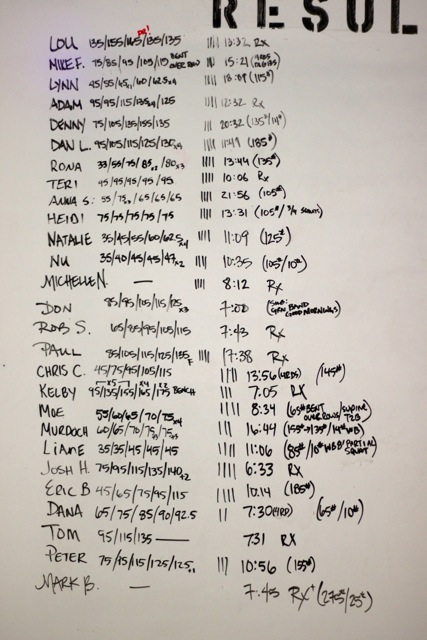 RESUL
PR!
LOU 135/155/165/135/135 |||| 13:32 Rx
MIKE F. 75/85/95/105/115 BENT OVER ROW ||| 15:21
LYNN 45/55/65/60/62.5 |||| 18:09 (115#)
ADAM 95/95/115/135/125 |||| 12:32 Rx
DENNY 75/105/135/155/135 |||| 20:32 (135#/14#)
DAN L. 95/105/115/125/135x4 |||| 11:49 (185#)
RONA 33/55/75/85x2/80x3 |||| 13:44 (135#)
TERI 45/45/45/45/45 |||| 10:06 Rx
ANNA S. 55/75/65/65/65 |||| 21:56 (105#)
HEIDI 75/75/75/75/75 |||| 13:31 (105#/ 3/4 SQUAT)
NATALIE 35/45/55/60/62.5x4 |||| 11:09 (125#)
NU 35/40/45/45/47x2 |||| 10:35 (105#/10#)
MICHELLE N. — |||| 8:12 Rx
DON 85/95/105/115/125x3 7:00 (SUB: GRN BAND GOOD MORNINGS)
ROB S. 65/85/95/105/115 7:43 Rx
PAUL 85/105/115/125/135F |||| 17:38 Rx
CHRIS C. 45/75/95/105/115 |||| 13:56 (4RDS) (145#)
KELBY 95/135/155/165/175 BENCH ||| 7:05 RX
MOE 55/60/65/70/75x4 |||| 8:34 (65# BENT OVER ROWS/SUPINE T2B)
MURDOCH 60/65/70/75/75 |||| 16:44 (155#→135#/14# WB)
LIANE 35/35/45/45/45 |||| 11:06 (85#/10# WB/PARTIAL SQUAT)
JOSH H. 75/95/115/135/140x2 |||| 6:33 RX
ERIC B 45/65/75/95/115 |||| 10:14 (185#)
DANA 65/75/85/90/92.5 || 7:30 (4RD) (65#/10#)
TOM 95/115/135 — 731 RX
PETER 75/95/115/125/125 ||| 10:56 (155#)
MARK B. — 7:45 RX+ (275#/25#)